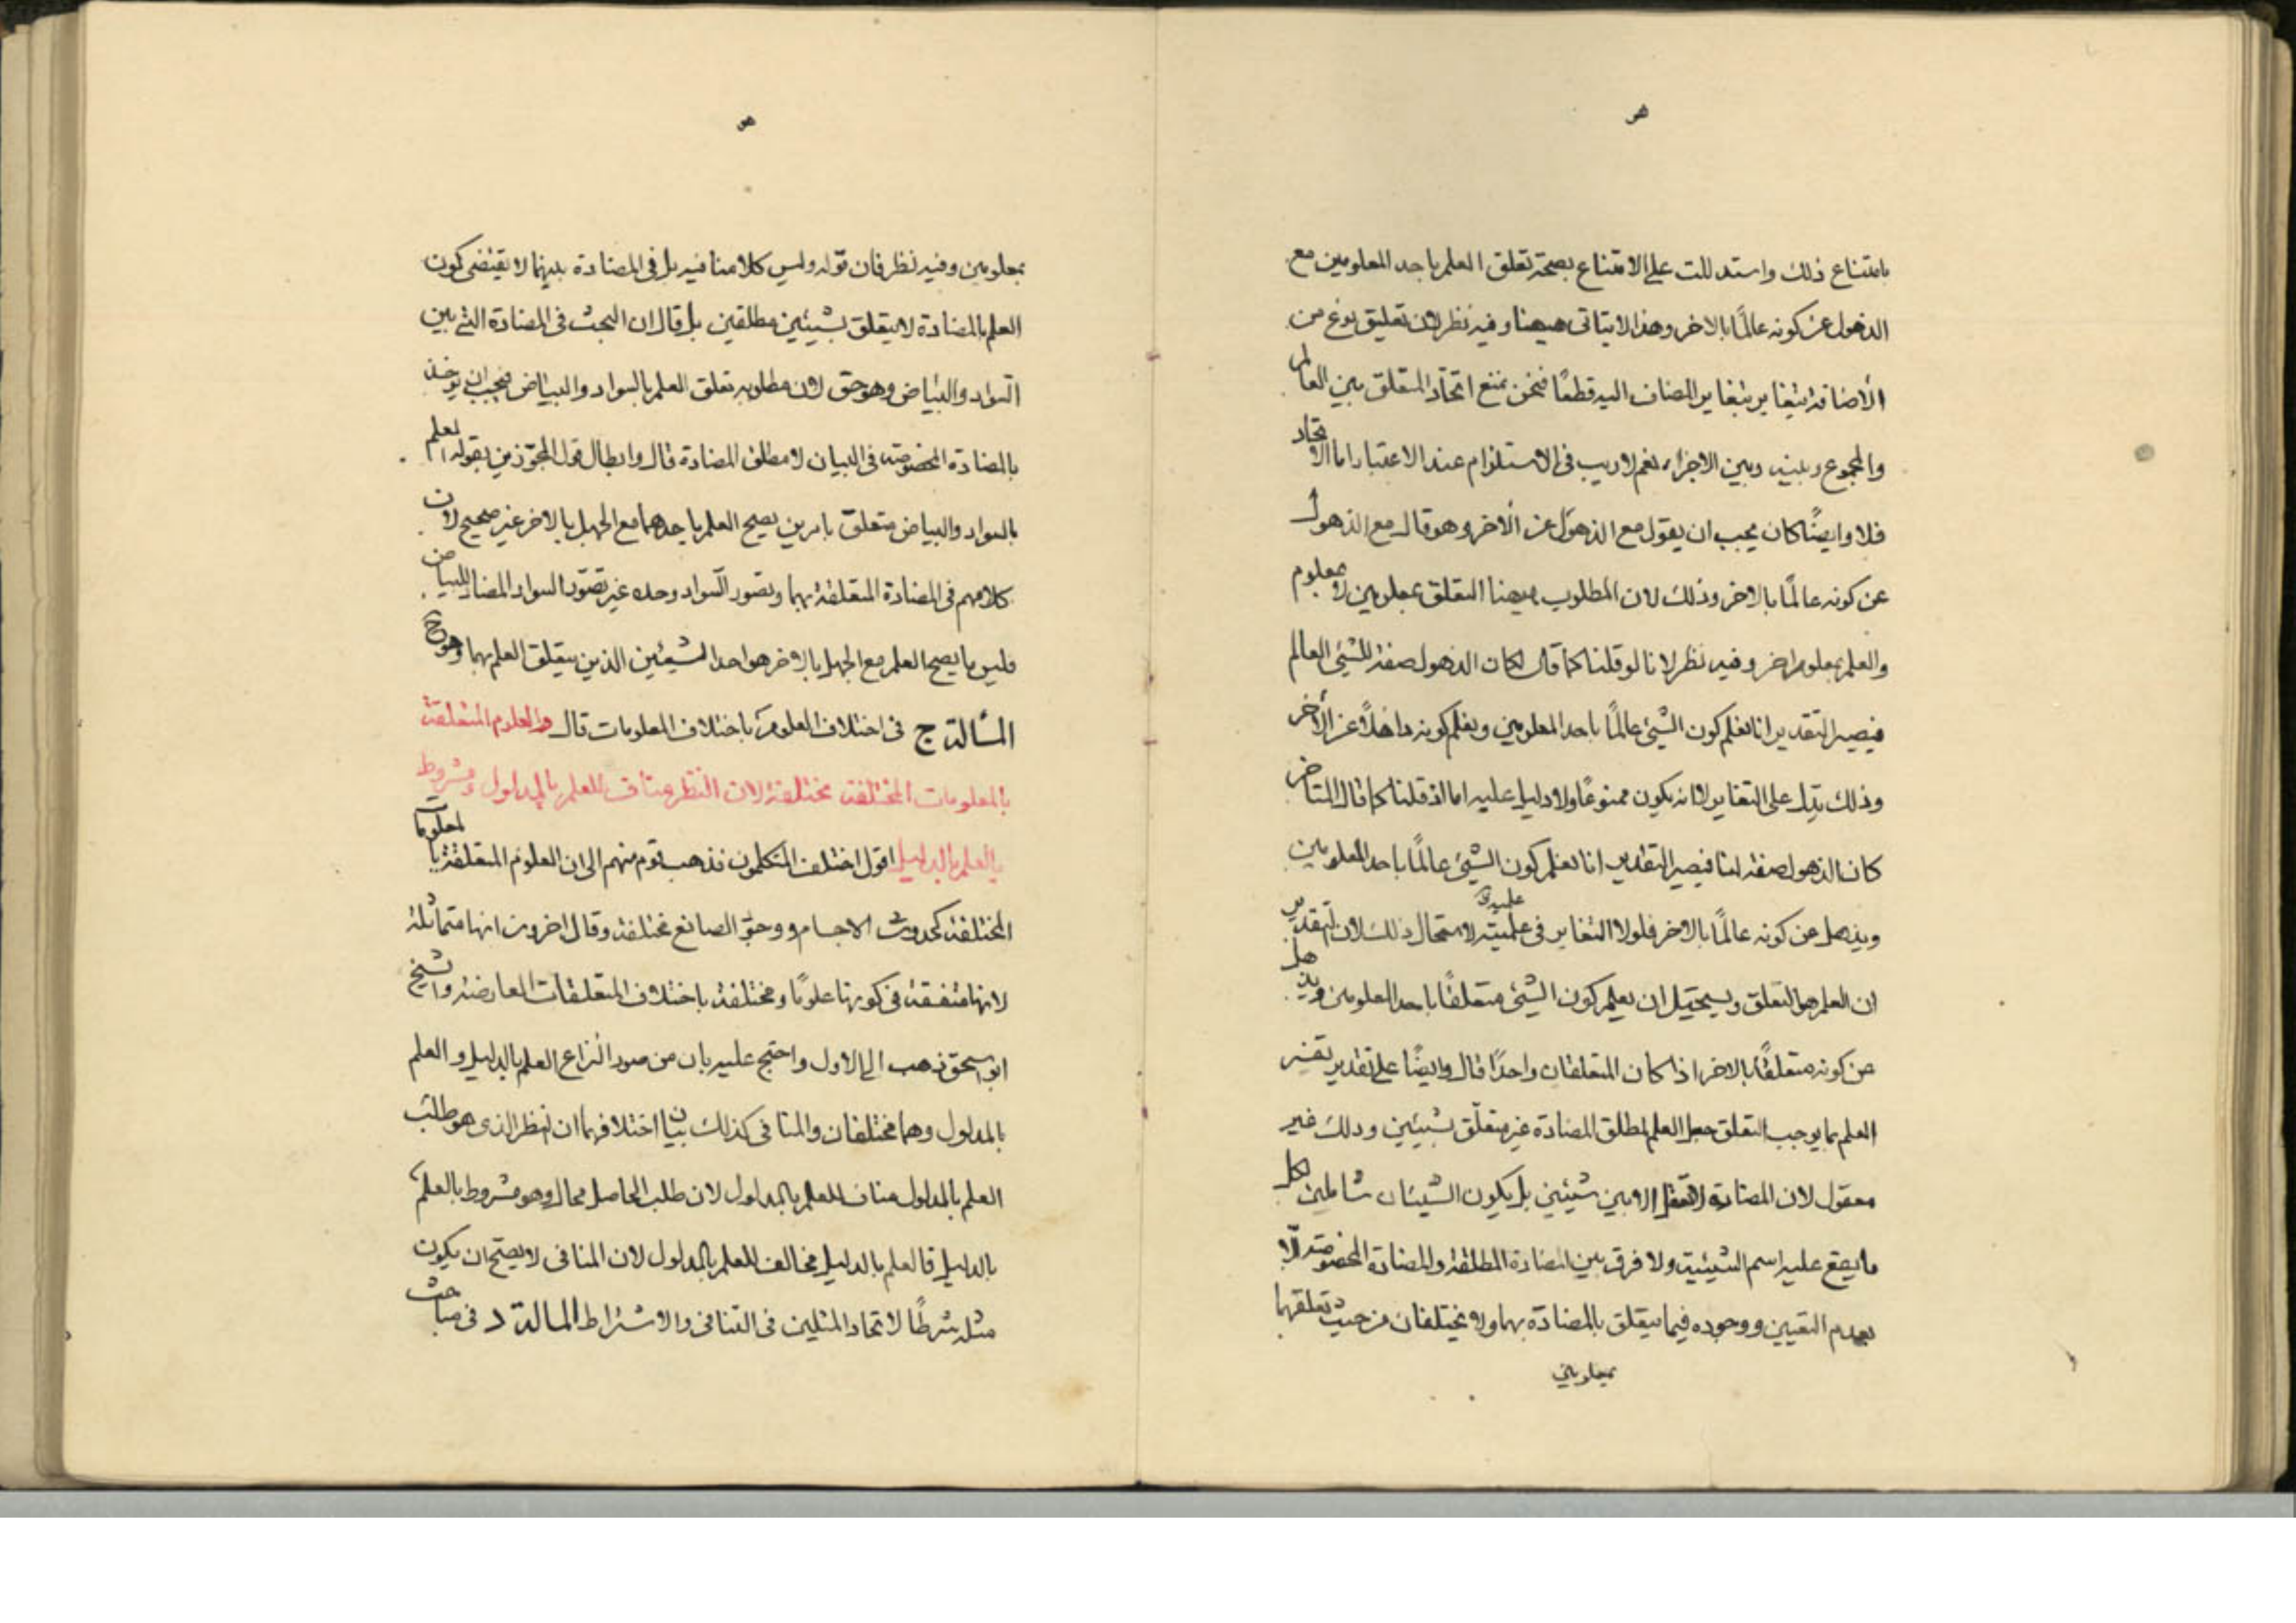 هو
بامتناع ذلك واستدللت على الامتناع بصحة تعلق العلم باحد المعلومين مع
الذهول عن كونه عالمًا بالاخر وهذا لا يتاتى هيهنا وفيه نظر لان تعليق نوع من
الأضافة يتغاير بتغاير المضاف اليه قطعًا فنحن نمنع اتحاد المتعلق بين العالم
والمجموع وبينه وبين الاجزاء نعم لا ريب فى الاستلزام عند الاعتبار اما الاتحاد
فلا وايضًا كان يجب ان يقول مع الذهول عن الاخر وهو قال مع الذهول
عن كونه عالمًا بالاخر وذلك لان المطلوب هيهنا التعلق بمعلومين لا معلوم
والعلم بمعلوم اخر وفيه نظر لانا لو قلنا كما قال لكان الذهول صفة للشئ العالم
فيصير التقدير انا نعلم كون الشئ عالمًا باحد المعلومين ونعلم كونه ذاهلًا عن الأخر
وذلك يدل على التغاير لانه يكون ممنوعًا ولا دليل عليه اما اذ قلنا كما قال المتاخر
كان الذهول صفة لنا فيصير التقدير انا نعلم كون الشئ عالمًا باحد المعلومين
ويذهل عن كونه عالمًا بالاخر فلولا التغاير فى علميته لاستحال ذلك لان التقدير
ان العلم هو التعلق ويستحيل ان يعلم كون الشئ متعلقًا باحد المعلومين ويذهل
عن كونه متعلقًا بالاخر اذا كان المتعلقان واحدًا قال وايضًا على تقدير تفسر
العلم بما يوجب التعلق جعل العلم لمطلق المضادة غير متعلق بشيئين وذلك غير
معقول لان المضادة لا تعقل الا بين شيئين بل يكون الشيئان شاملين لكل
ما يقع عليه اسم الشيئية ولا فرق بين المضادة المطلقة والمضادة المخصوصة الا
بعدم التعيين ووجوده فيما يتعلق بالمضادة بهما ولا يختلفان من حيث تعلقهما
بمعلومين
هو
بمعلومين وفيه نظر فان قوله وليس كلامنا فيه بل فى المضادة بينهما لا يقتضى كون
العلم بالمضادة لا يتعلق بشيئين مطلقين بل قال ان البحث فى المضادة التى بين
السواد والبياض وهو حق لان مطلوبه تعلق العلم بالسواد والبياض فيجب ان يوخذ
بالمضادة المخصوصة فى البيان لا مطلق المضادة قال وابطال قول المجوزين بقوله العلم
بالسواد والبياض متعلق بامرين يصح العلم باحدهما مع الجهل بالاخر غير صحيح لان
كلامهم فى المضادة المتعلقة بهما وتصور السواد وحده غير تصور السواد المضاد للبياض
فليس ما يصح العلم مع الجهل بالاخر هو احد الشيئين الذين يتعلق العلم بهما وهو ح
المسألة ج فى اختلاف العلوم باختلاف المعلومات قال والعلوم المتعلقة
بالمعلومات المختلفة مختلفة لان النظر مناف للعلم بالمدلول ومشروط
بالعلم بالدليل اقول اختلف المتكلمون فذهب قوم منهم الى ان العلوم المتعلقة بالمعلومات
المختلفة كحدوث الاجسام ووجود الصانع مختلفة وقال اخرون انها متماثلة
لانها متفقة فى كونها علومًا ومختلفة باختلاف المتعلقات العارضة والشيخ
ابو اسحق ذهب الى الاول واحتج عليه بان من صور النزاع العلم بالدليل والعلم
بالمدلول وهما مختلفان والمنافى كذلك بيان اختلافهما ان النظر الذى هو طلب
العلم بالمدلول مناف للعلم بالمدلول لان طلب الحاصل محال وهو مشروط بالعلم
بالدليل فالعلم بالدليل مخالف للعلم بالمدلول لان المنافى لا يصح ان يكون
مثله شرطًا لاتحاد المثلين فى التنافى والاشتراط المسالة د فى مباحث